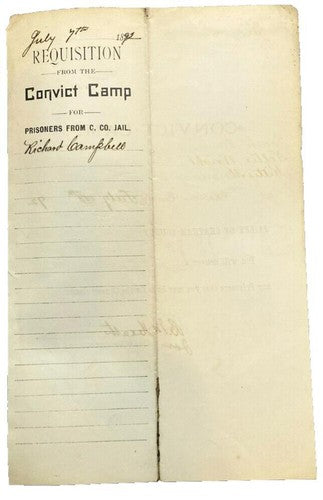 July 7th 1892
REQUISITION
FROM THE
Convict Camp
FOR
PRISONERS FROM C, CO. JAIL,
Richard Campbell